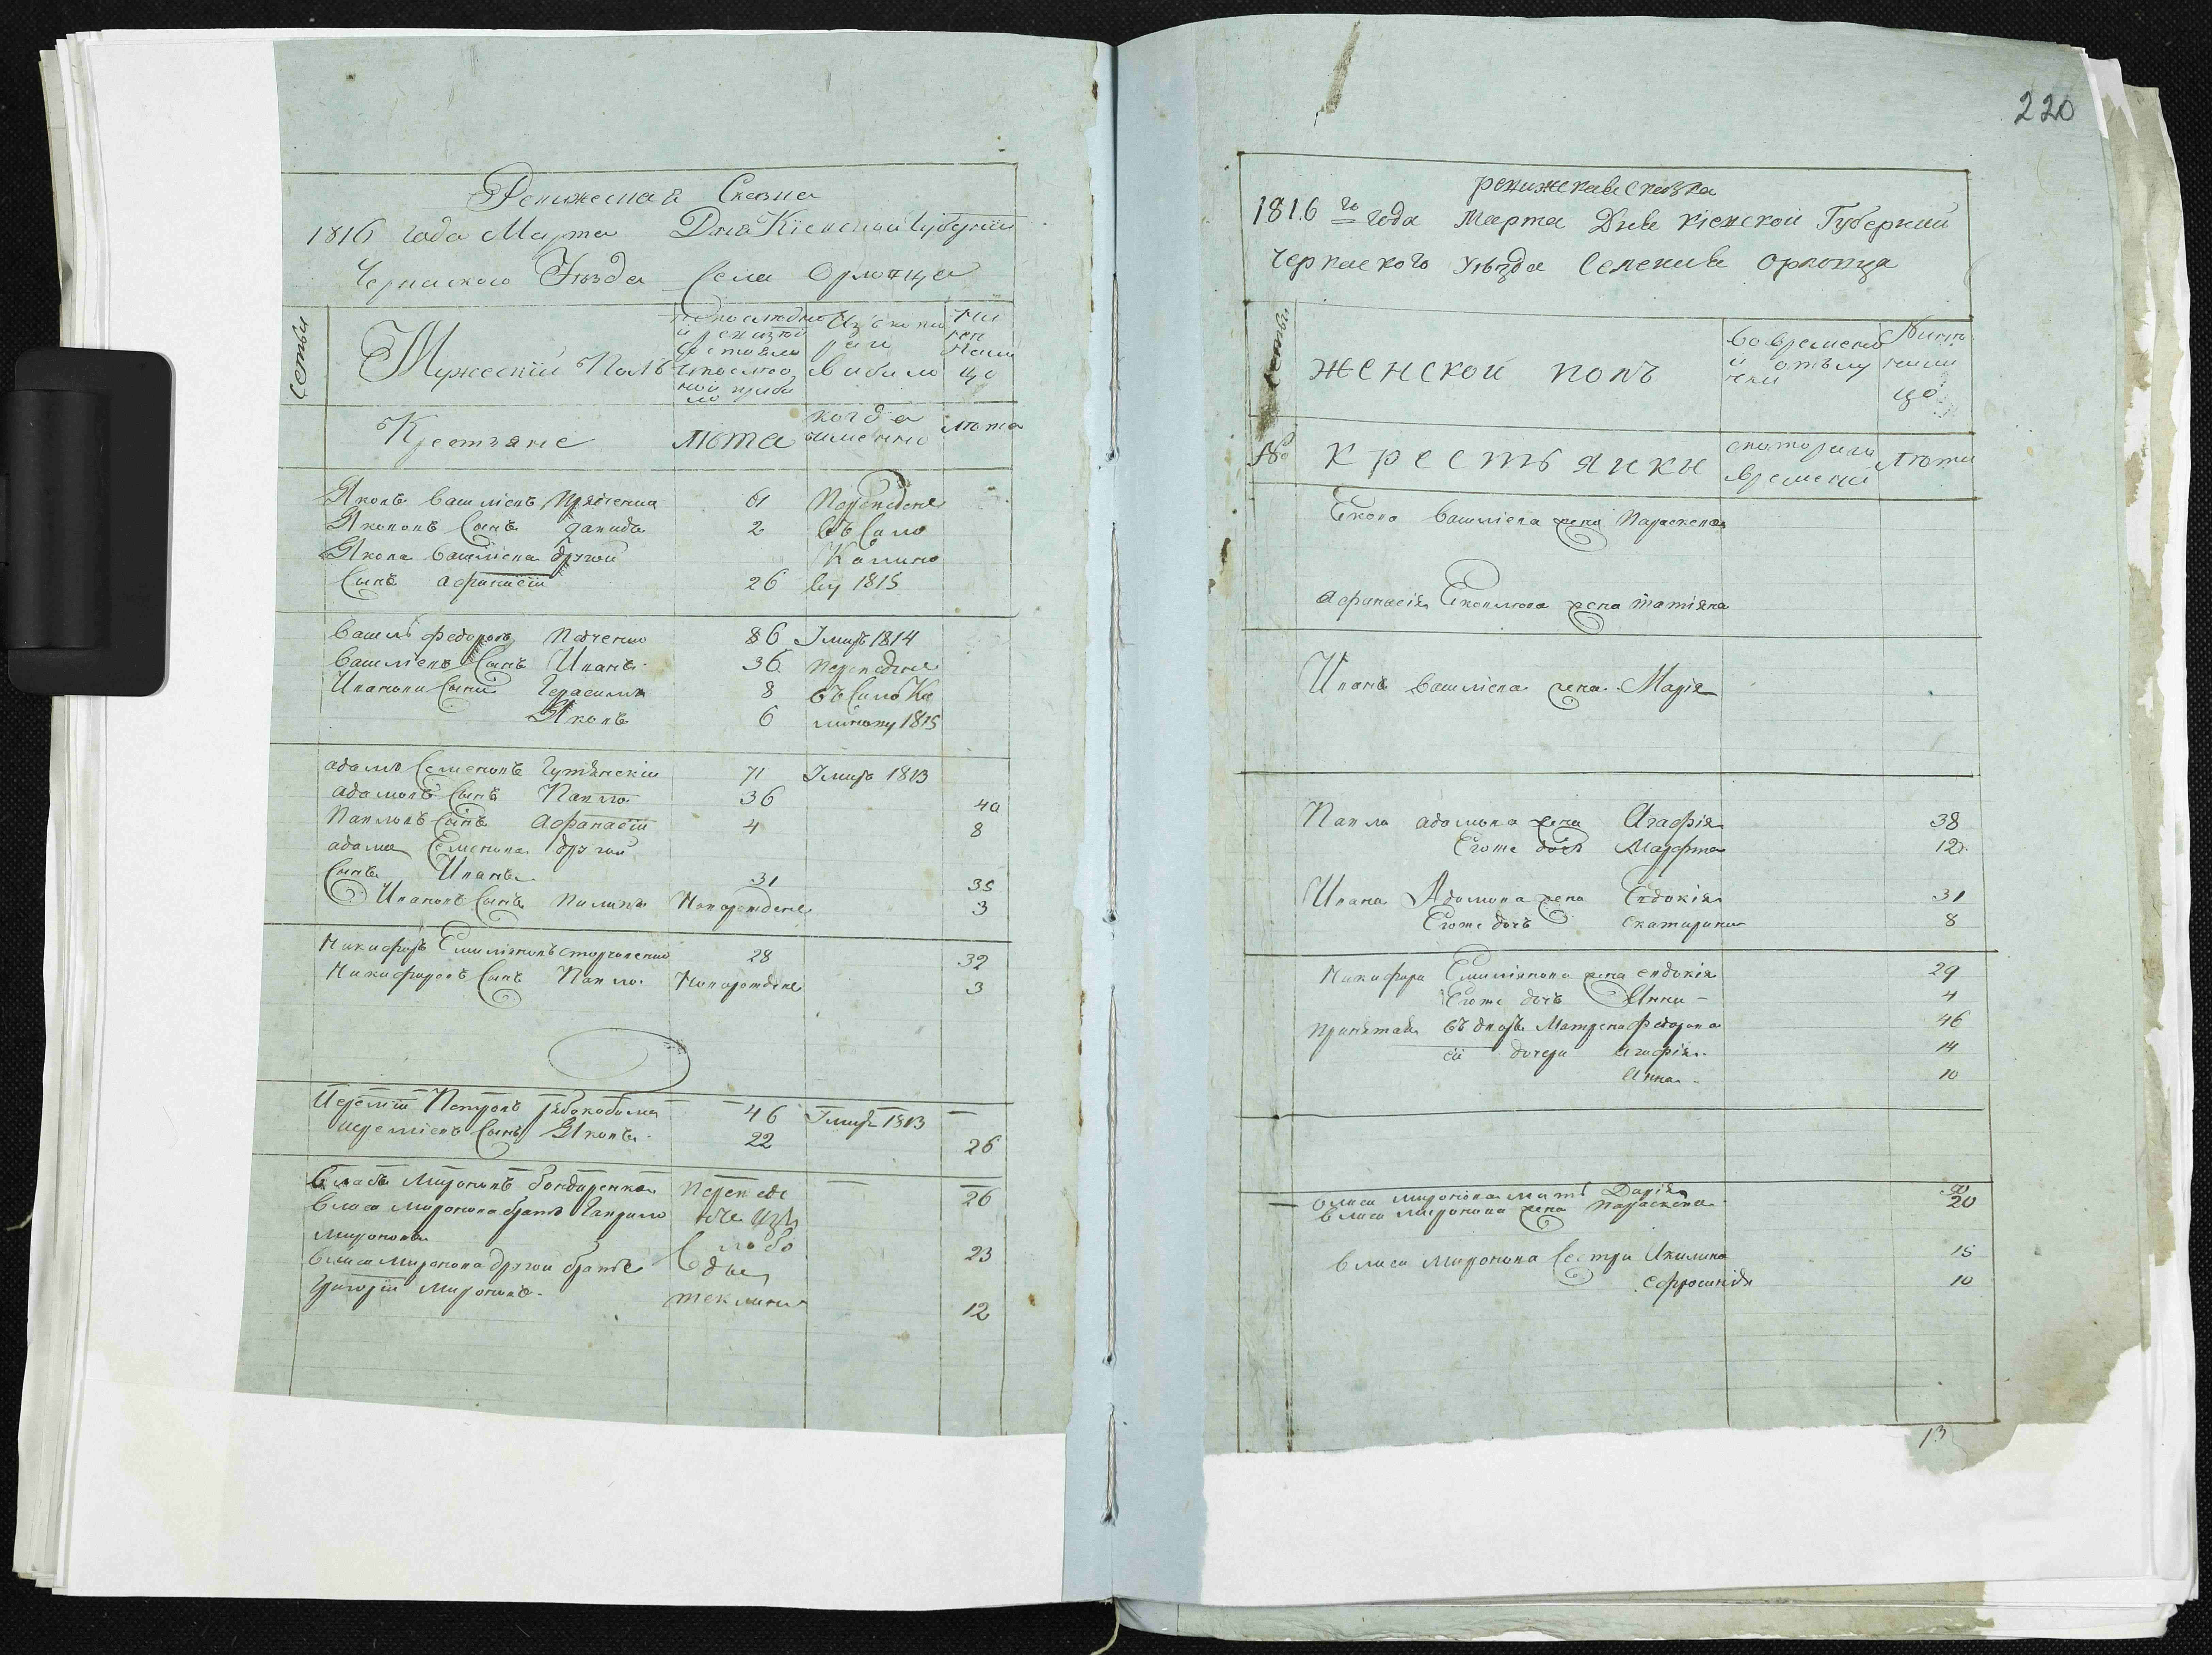 Ревижеская Сказка
1816 года Марта Дня Кіевской Губерніи
Черкаского Уѣзда Села Орловца
Семьи
Мужескій Полъ
Крестьяне
лѣта
когда
именно
лѣта
Яковъ Василіевъ
61
Переведенъ
Якововъ Сынъ Давидъ
2
въ Село
Якова Василіева другой
Калино
Сынъ Афанасій
26
ву 1815
Василь Федоровъ
86
Умеръ 1814
Василіевъ Сынъ Иванъ
36
Переведенъ
Ивановы Сыны Герасимъ
8
въ Село Ка
Яковъ
6
линову 1815
Адамъ Семеновъ Гутянскій
71
Умеръ 1813
Адамовъ Сынъ Павло
36
40
Павловъ Сынъ Афанасій
4
8
Адама Семенова другой
Сынъ Иванъ
31
35
Ивановъ Сынъ
Новорожденъ
3
Никифоръ Емиліяновъ
28
32
Никифоровъ Сынъ Павло
Новорожденъ
3
Іеремій Петровъ
46
Умеръ 1813
Іереміевъ Сынъ Яковъ
22
26
Власъ Мироновъ Бондаренко
Переведе
26
Власа Миронова братъ Гаврило
Мироновъ
23
Власа Миронова другой братъ
Григорій Мироновъ
12
220
ревижская сказка
1816 го года Марта Дня Кіевской Губерній
Черкаского Уѣзда Селенія Орловца
Семьи
женской полъ
во времени
№
крестьянки
с котораго
времени
лѣта
Якова Василіева жена Параскева
Афанасія Яковлева жена Татіяна
Иванъ Василіева жена Марія
Павла Адамова жена Агафія
38
Егоже дочь Марфа
12
Ивана Адамова жена Евдокія
31
Егоже дочь Екатирина
8
Никифора Емиліянова жена Евдокія
29
Егоже дочь Анна
4
Принятая въ дворъ Матрена Федорова
46
ей дочери Агафія
14
Анна
10
Власа Миронова мать Дарія
Власа Миронова жена Параскева
20
Власа Миронова Сестри Акилина
15
Ефросинія
10
13